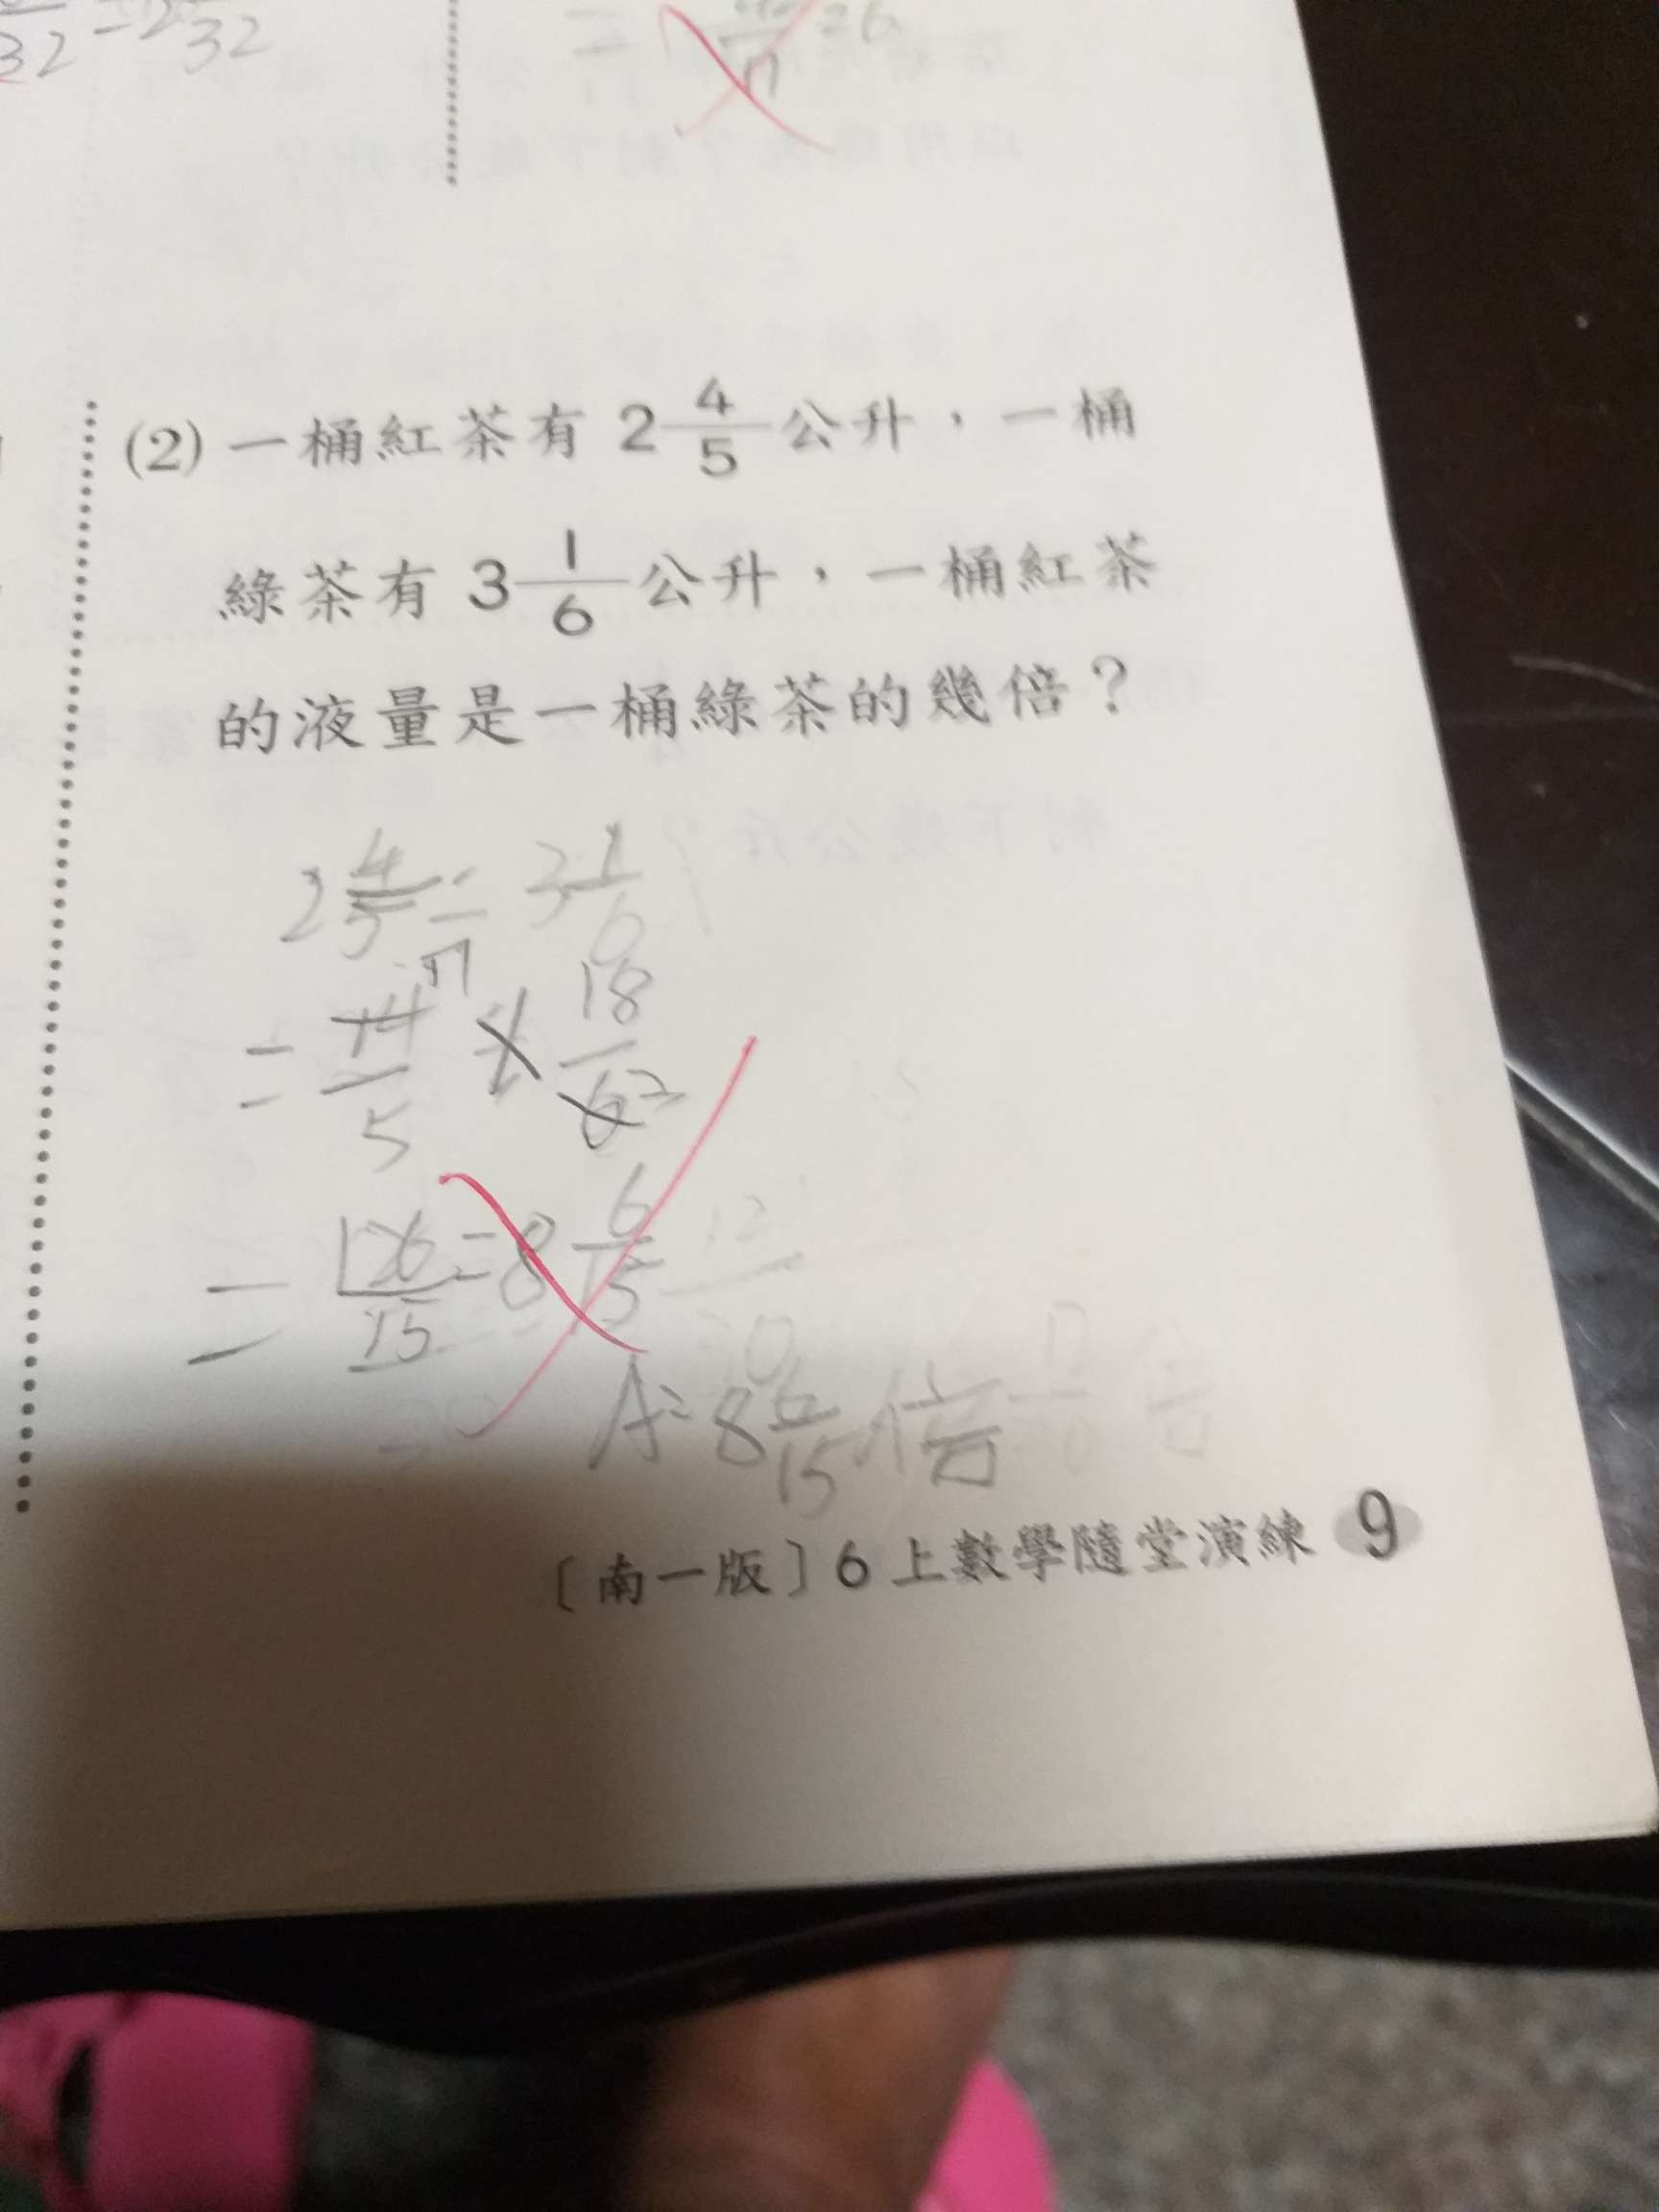 32 = 2 32
(2) 一桶紅茶有 2 4/5 公升，一桶
綠茶有 3 1/6 公升，一桶紅茶
的液量是一桶綠茶的幾倍？
2 4/5 ÷ 3 1/6
= 14/5 × 18/6
= 126/15 = 8 6/15
A= 8 6/15 倍
〔南一版〕6 上數學隨堂演練 9